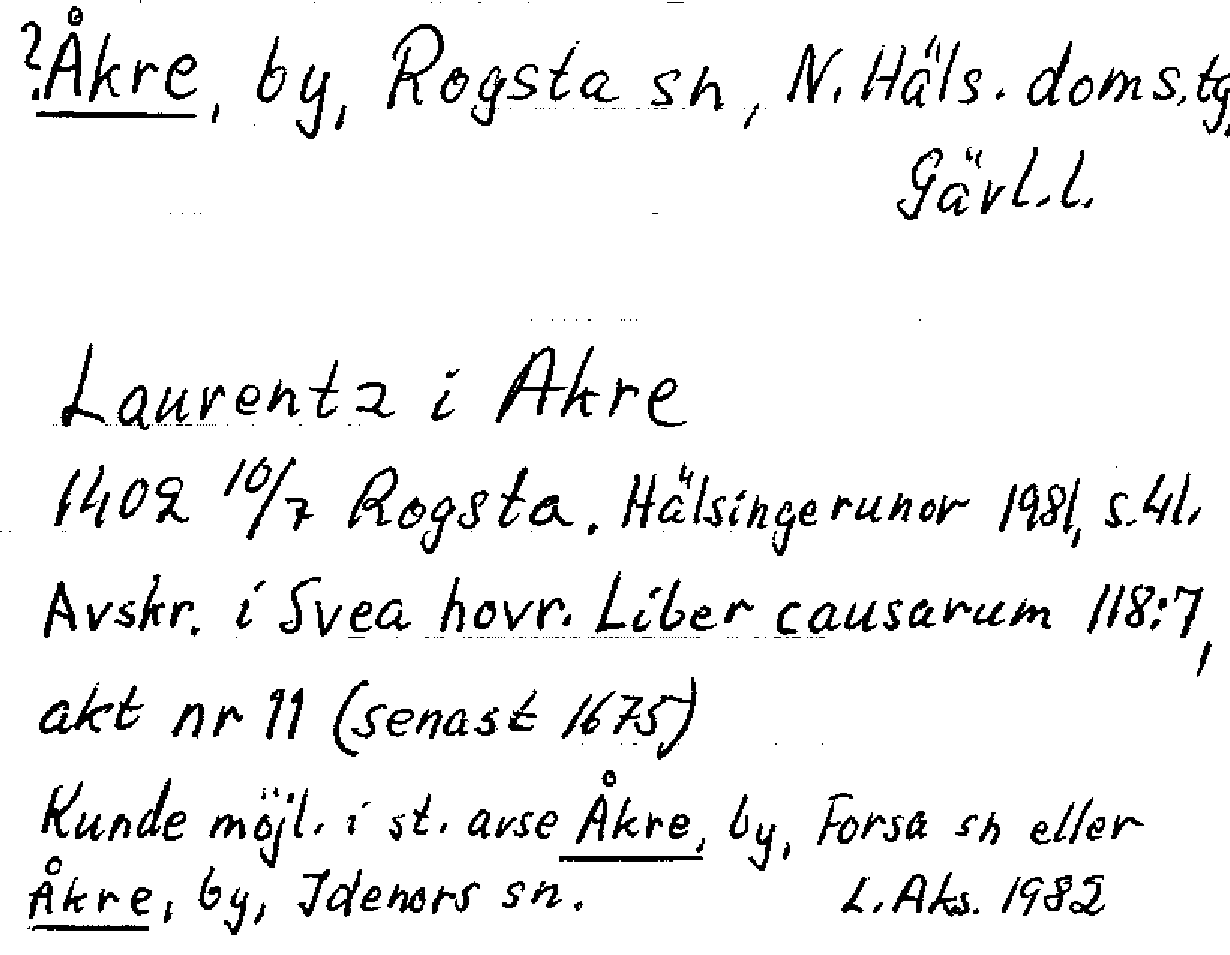 ?Åkre, by, Rogsta sn, N. Häls. doms.tg,
Gävl.l.
Laurentz i Akre
1402 10/7 Rogsta. Hälsingerunor 1981, s.41.
Avskr. i Svea hovr. Liber causarum 118:7,
akt nr 11 (senast 1675)
Kunde möjl. i st. avse Åkre, by, Forsa sn eller
Åkre, by, Idenors sn. L. Aks. 1982